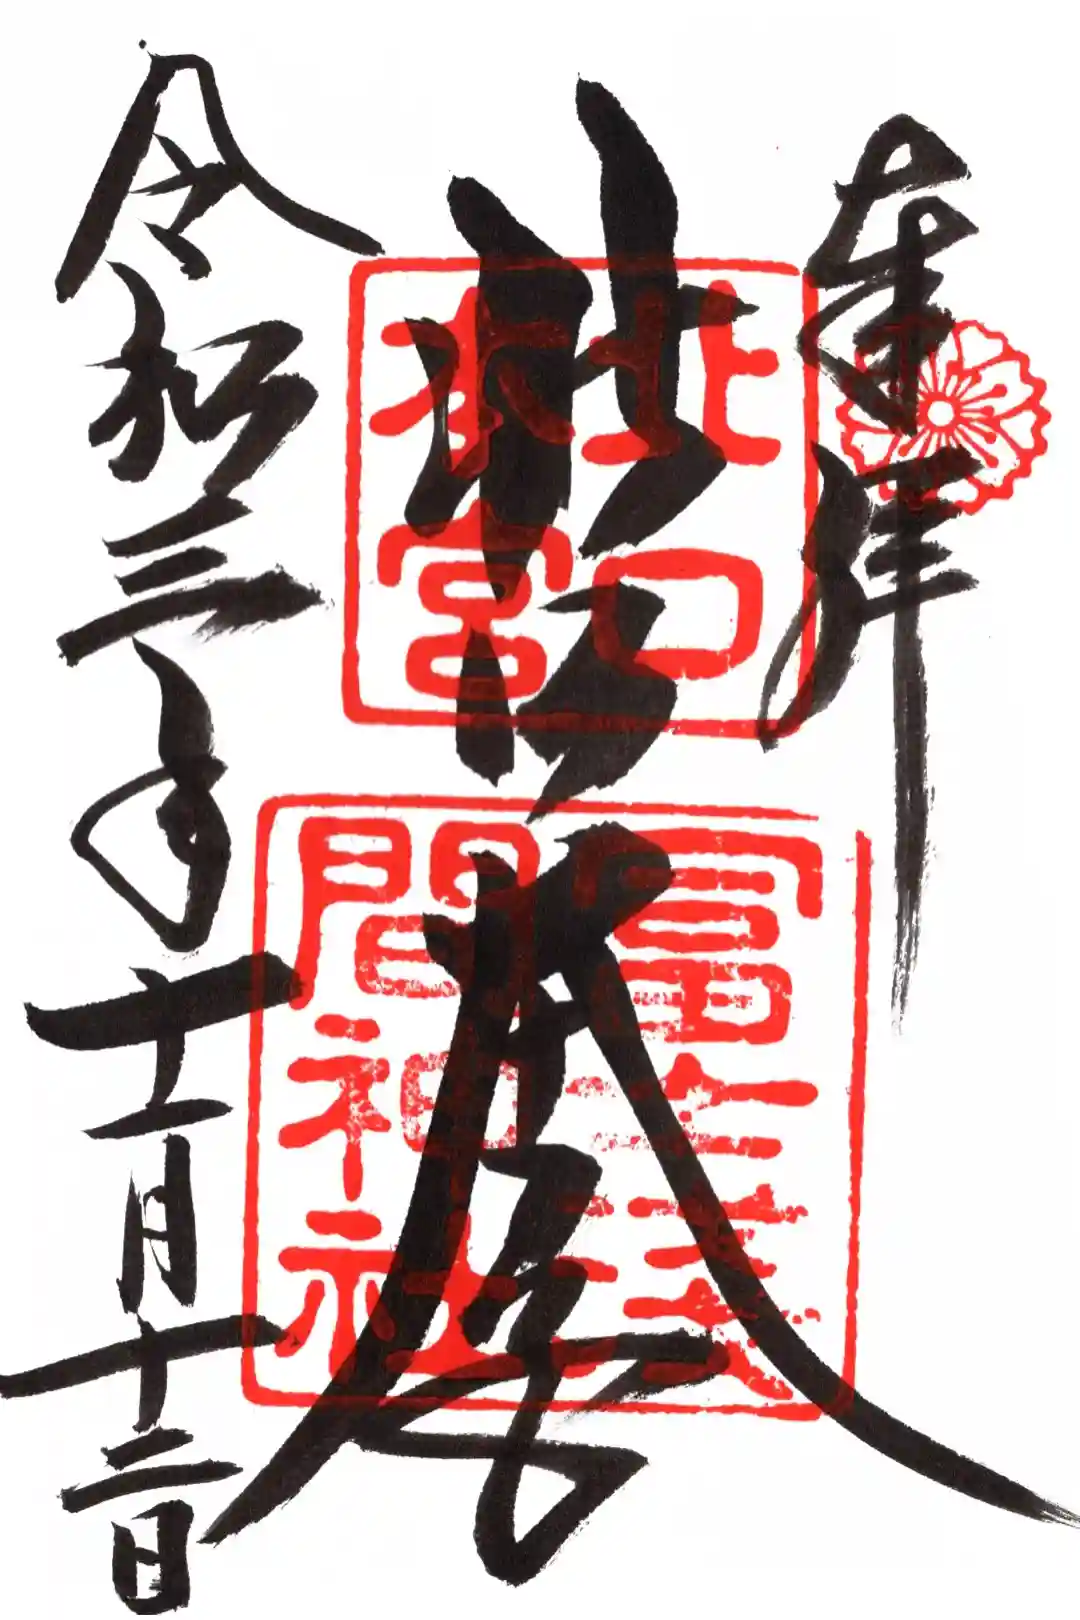 奉拝
北口本宮
令和三年十一月十二日
北口
本宮
冨士淺
間神社